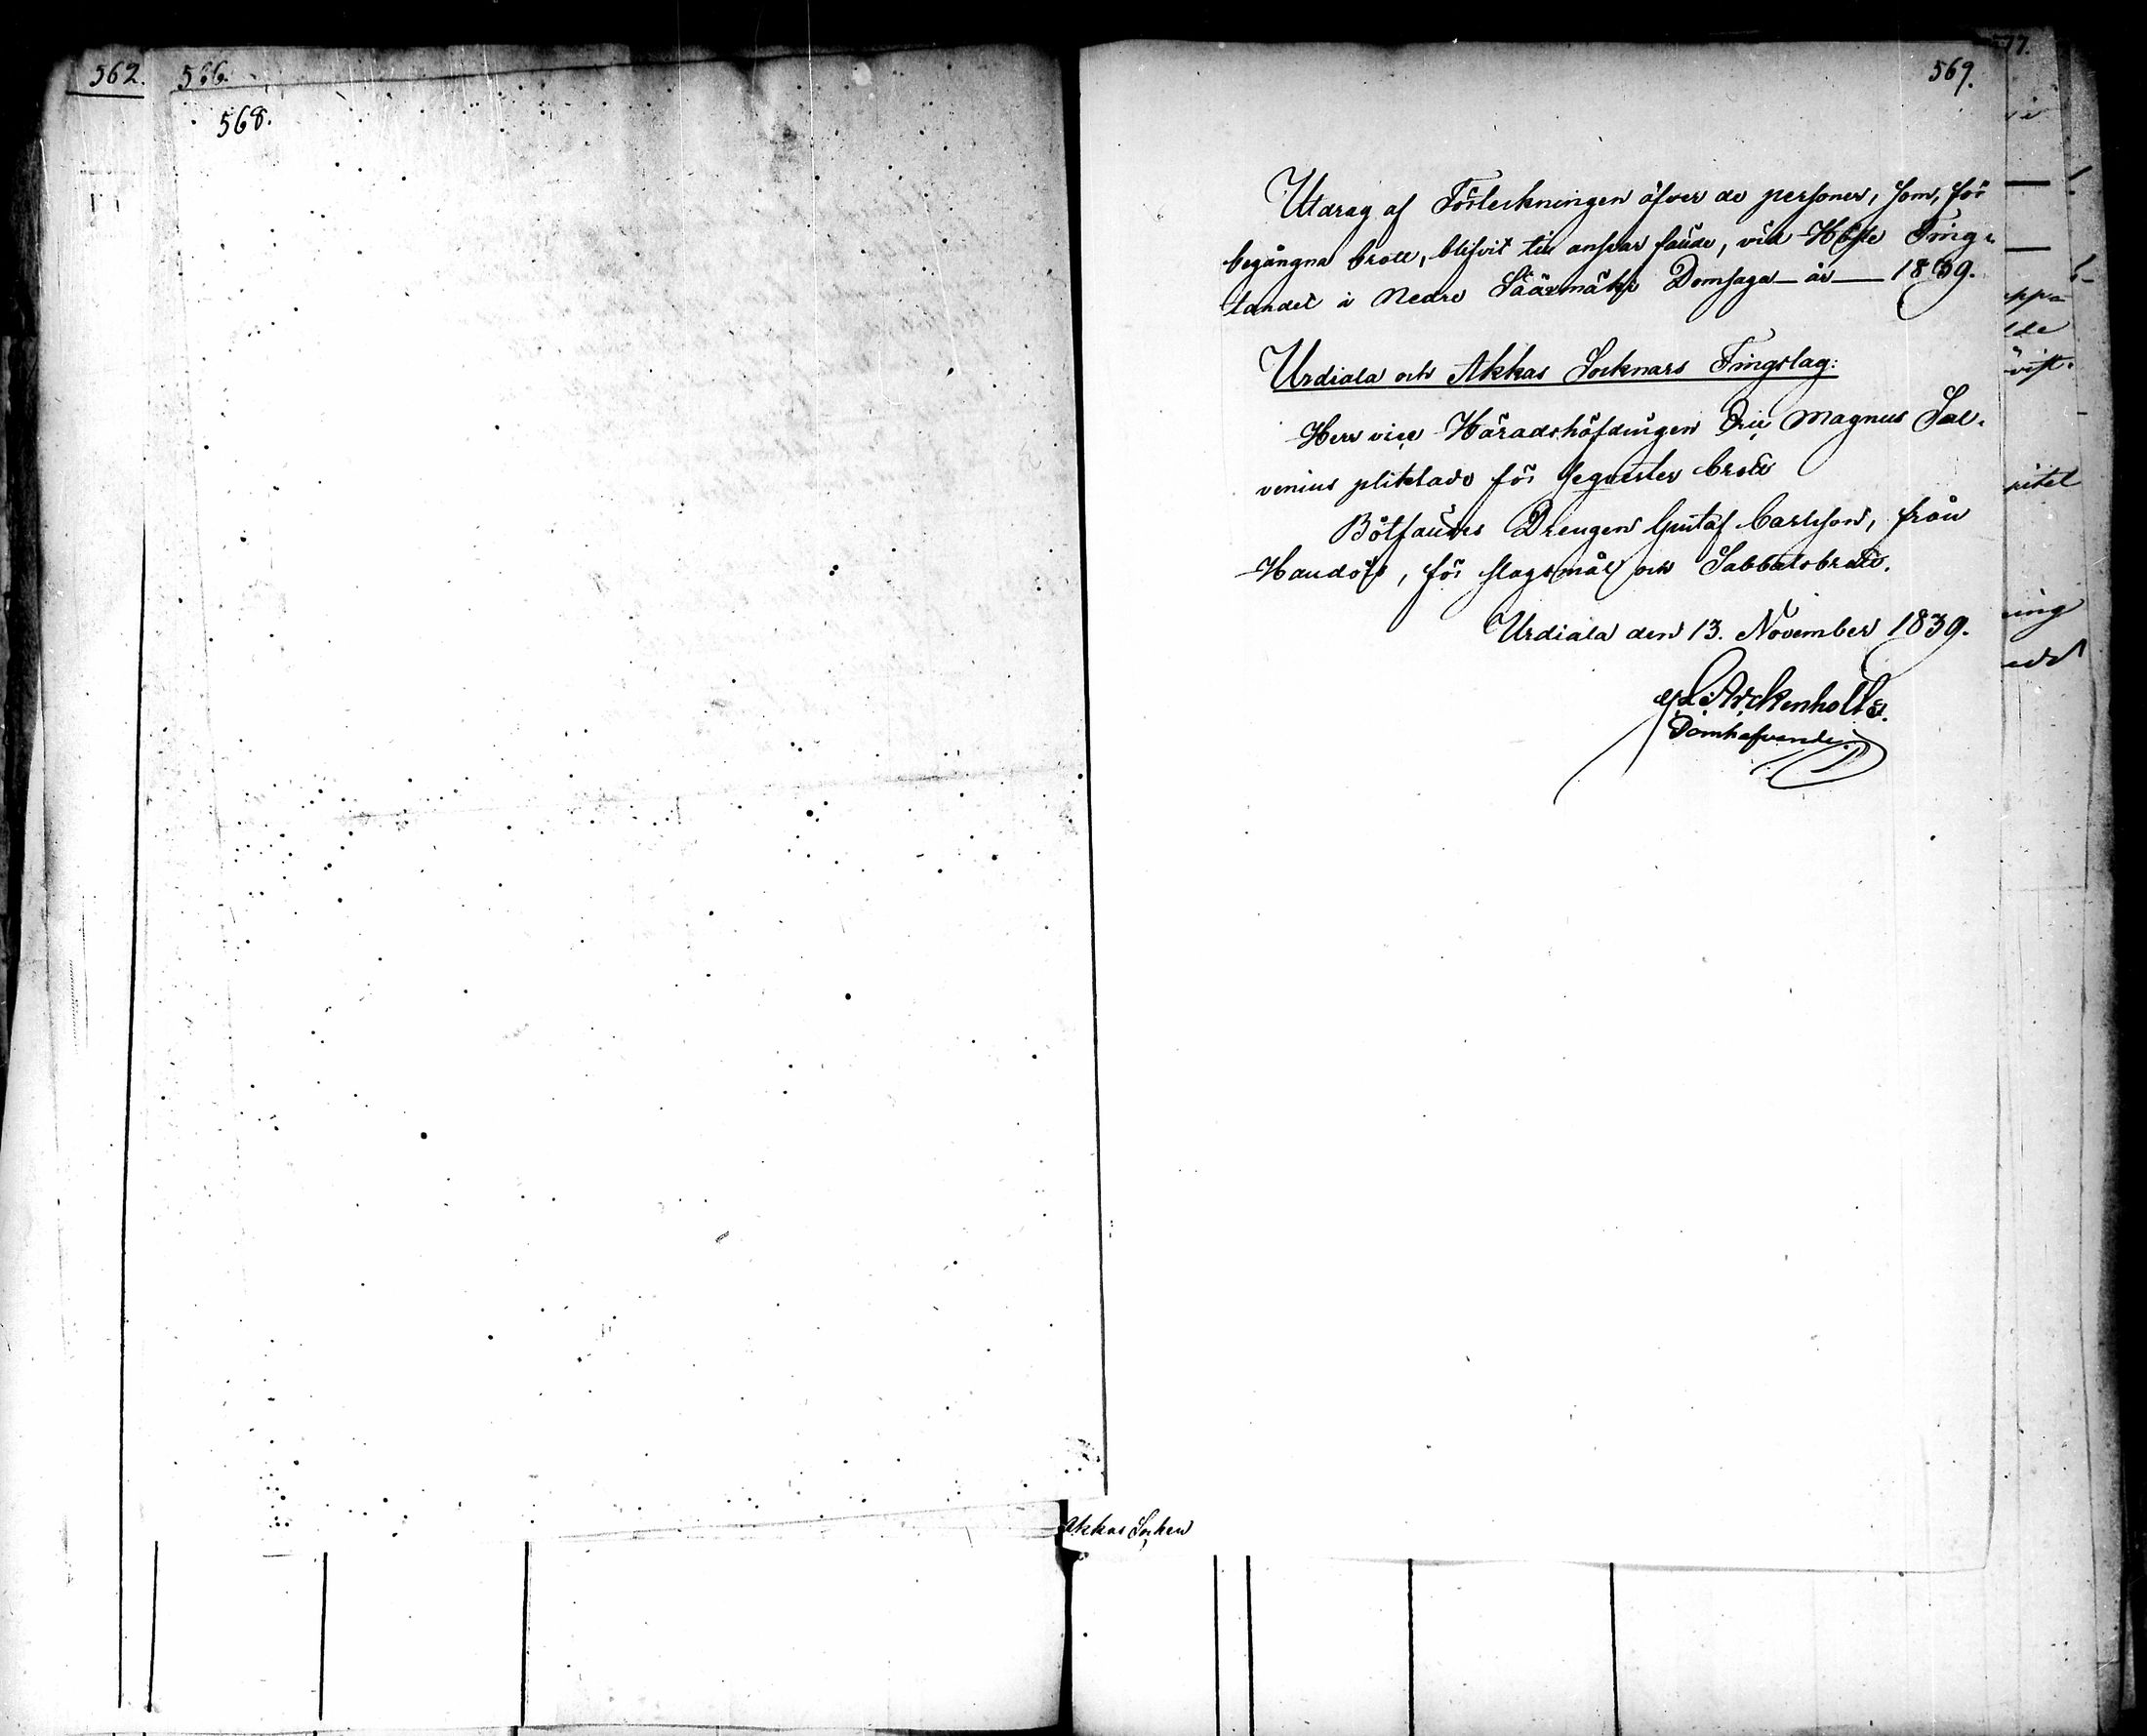 562.
566.
568.
569.
77.
Utdrag af Förteckningen öfver de personer, som, för
begångna brott, blifvit till ansvar fälde, vid Höste Ting-
tandet i Nedre Säärmäki Domsaga år 1839.
Urdiala och Akkas Socknars Tingslag:
Herr vice Häradshöfdingen Eric Magnus Sal-
venius pliktade för sequester brott
Bötfäldes Drengen Gustaf Carlsson, från
för slagsmål och Sabbatsbrott.
Urdiala den 13. November 1839.
Arckenholtz.
Domhafvande.
Akkas Socken